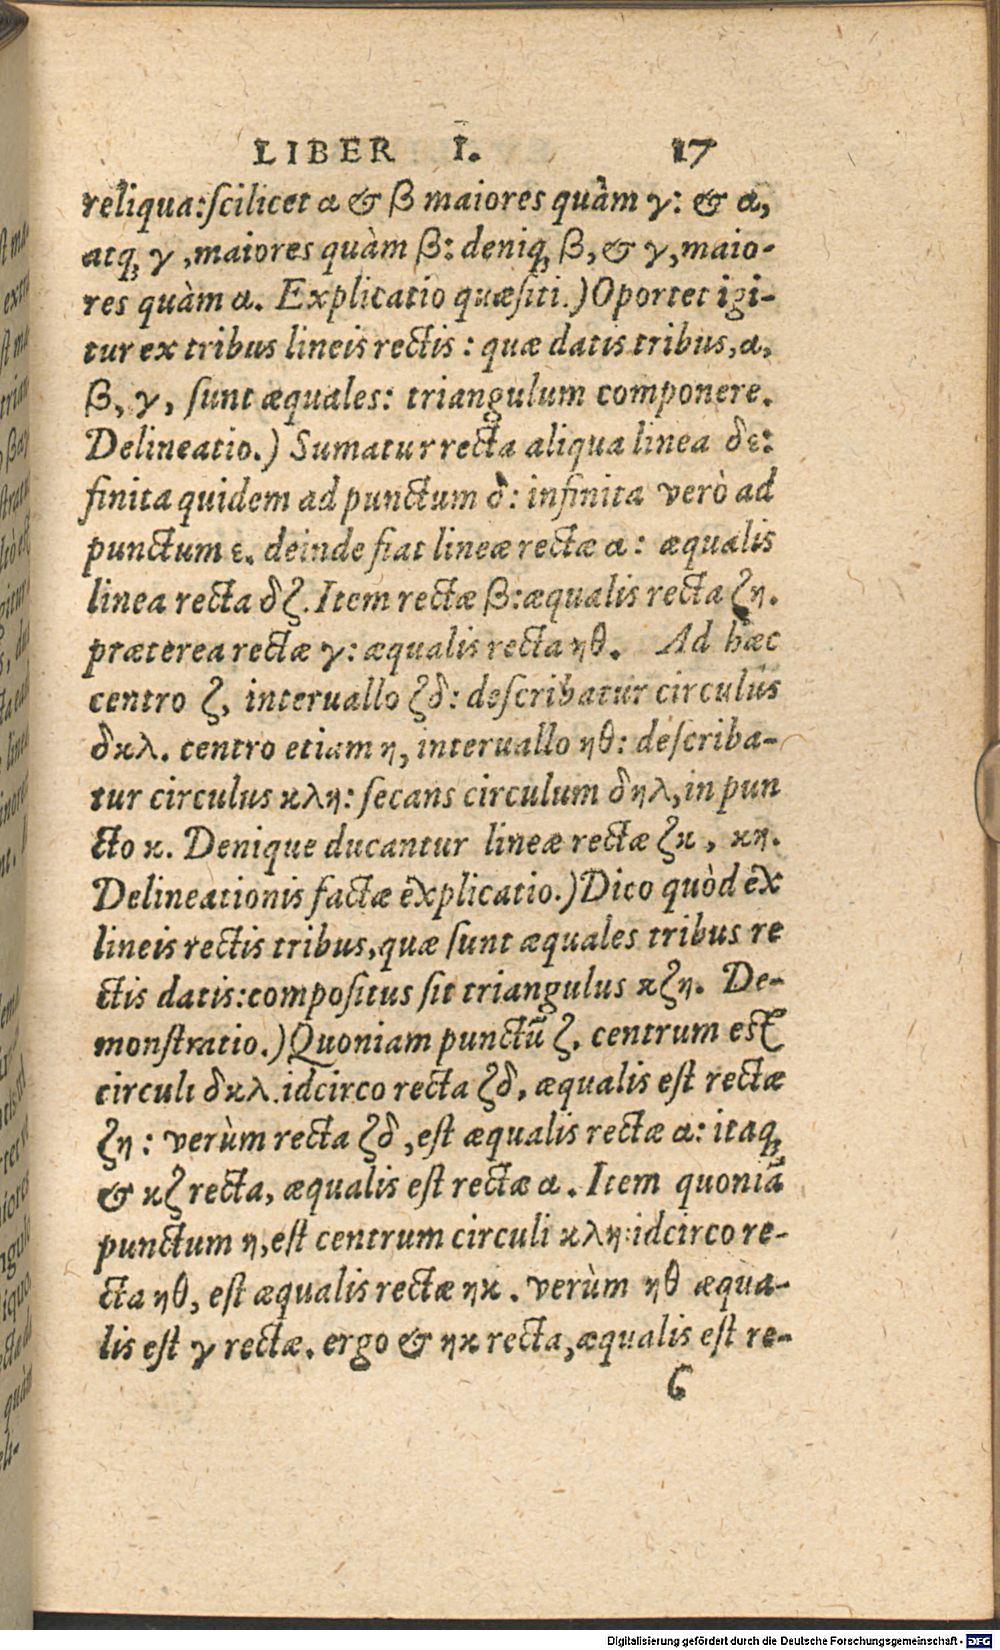 LIBER I. 17
reliqua:ſcilicet α & β maiores quàm γ: & α,
atq; γ, maiores quàm β: deniq; β, & γ, maio-
res quàm α. Explicatio quæſiti.) Oportet igi-
tur ex tribus lineis rectis: quæ datis tribus, α,
β, γ, ſunt æquales: triangulum componere.
Delineatio.) Sumatur recta aliqua linea δε:
finita quidem ad punctum δ: infinita verò ad
punctum ε. deinde fiat lineæ rectæ α: æqualis
linea recta δζ. Item rectæ β: æqualis recta ζη.
præterea rectæ γ: æqualis recta ηθ. Ad hæc
centro ζ, interuallo ζδ: deſcribatur circulus
δκλ. centro etiam η, interuallo ηθ: deſcriba-
tur circulus κλη: ſecans circulum δηλ, in pun
cto κ. Denique ducantur lineæ rectæ ζκ, κη.
Delineationis factæ explicatio.) Dico quòd ex
lineis rectis tribus, quæ ſunt æquales tribus re
ctis datis: compoſitus ſit triangulus κζη. De-
monſtratio.) Quoniam punctũ ζ, centrum eſt
circuli δκλ. idcirco recta ζδ, æqualis eſt rectæ
ζη: verùm recta ζδ, eſt æqualis rectæ α: itaq;
& κζ recta, æqualis eſt rectæ α. Item quoniã
punctum η, eſt centrum circuli κλη: idcirco re-
cta ηθ, eſt æqualis rectæ ηκ. verùm ηθ æqua-
lis eſt γ rectæ. ergo & ηκ recta, æqualis eſt re-
G
Digitalisierung gefördert durch die Deutsche Forschungsgemeinschaft - DFG